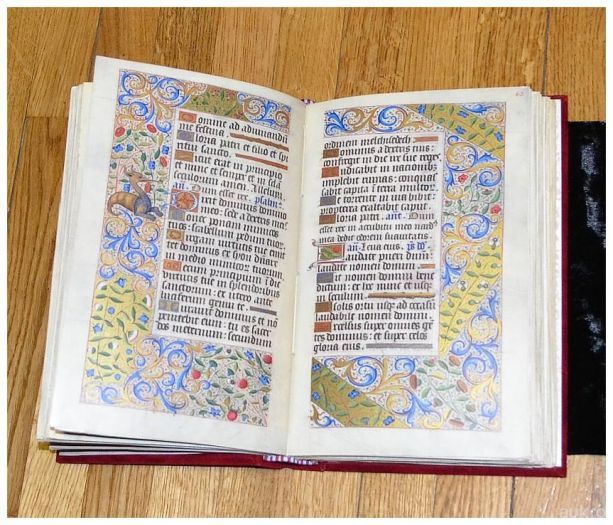 omine ad adiuuandũ
me festina.
loria patri et filio et spi
ritui sancto.
icut erat in principio
et nunc et semper et in secu
la seculorum amen. Alleluia.
añ. psalm⁹.
ixit dominus domino
meo: sede a dextris meis.
onec ponam inimicos
tuos: scabellum pedum tuor.
irgam uirtutis tue emit
tet dominus ex syon: dñare
in medio inimicorum tuorum.
ecum principium ĩ die
uirtutis tue in splendoribus
sanctorum: ex utero ante
luciferum genui te.
urauit dominus et nõ
penitebit eum: tu es sacer
dos ineternum: secundum
ordinem melchisedech.
ominus a dextris tuis:
confregit in die ire sue reges.
udicabit in nacionibus
implebit ruinas: conquas
sabit capita ĩ terra multor.
e torrente in uia bibit:
propterea exaltabit caput.
loria patri. añt. Dum
esset rex in accubitu suo nard⁹
mea dedit odorem suauitatis.
añ. Leua eius. p̃s dd̃.
audate pueri dñm:
laudate nomen domini.
it nomen domini bene
dictum: ex hoc nunc et usq̃
in seculum.
solis ortu usq̃ ad occasũ:
laudabile nomen domini.
xcelsus super omnes gẽ
tes dominus: et super celos
gloria eius.